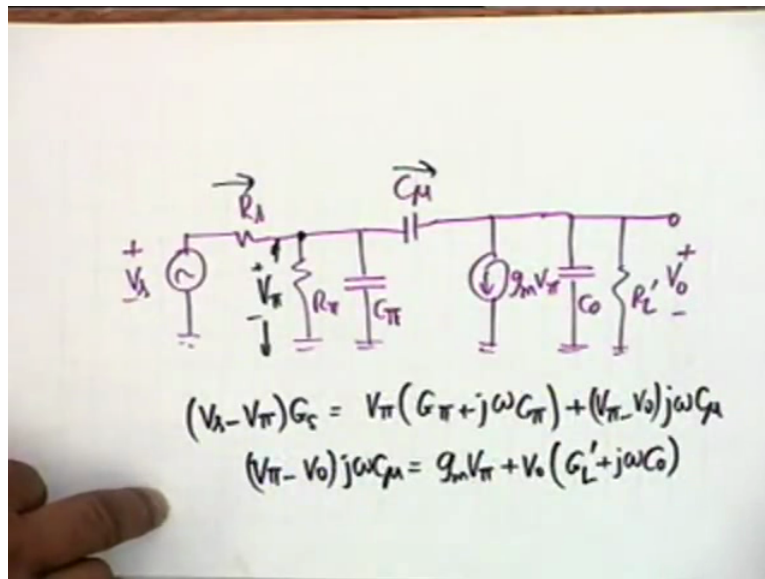 Rs
Cμ
+
Vs
-
+
Vπ
-
Rπ
Cπ
gmVπ
Co
RL'
+
Vo
-
(Vs-Vπ)Gs = Vπ(Gπ+jωCπ)+(Vπ-Vo)jωCμ
(Vπ-Vo)jωCμ = gmVπ+Vo(GL'+jωCo)